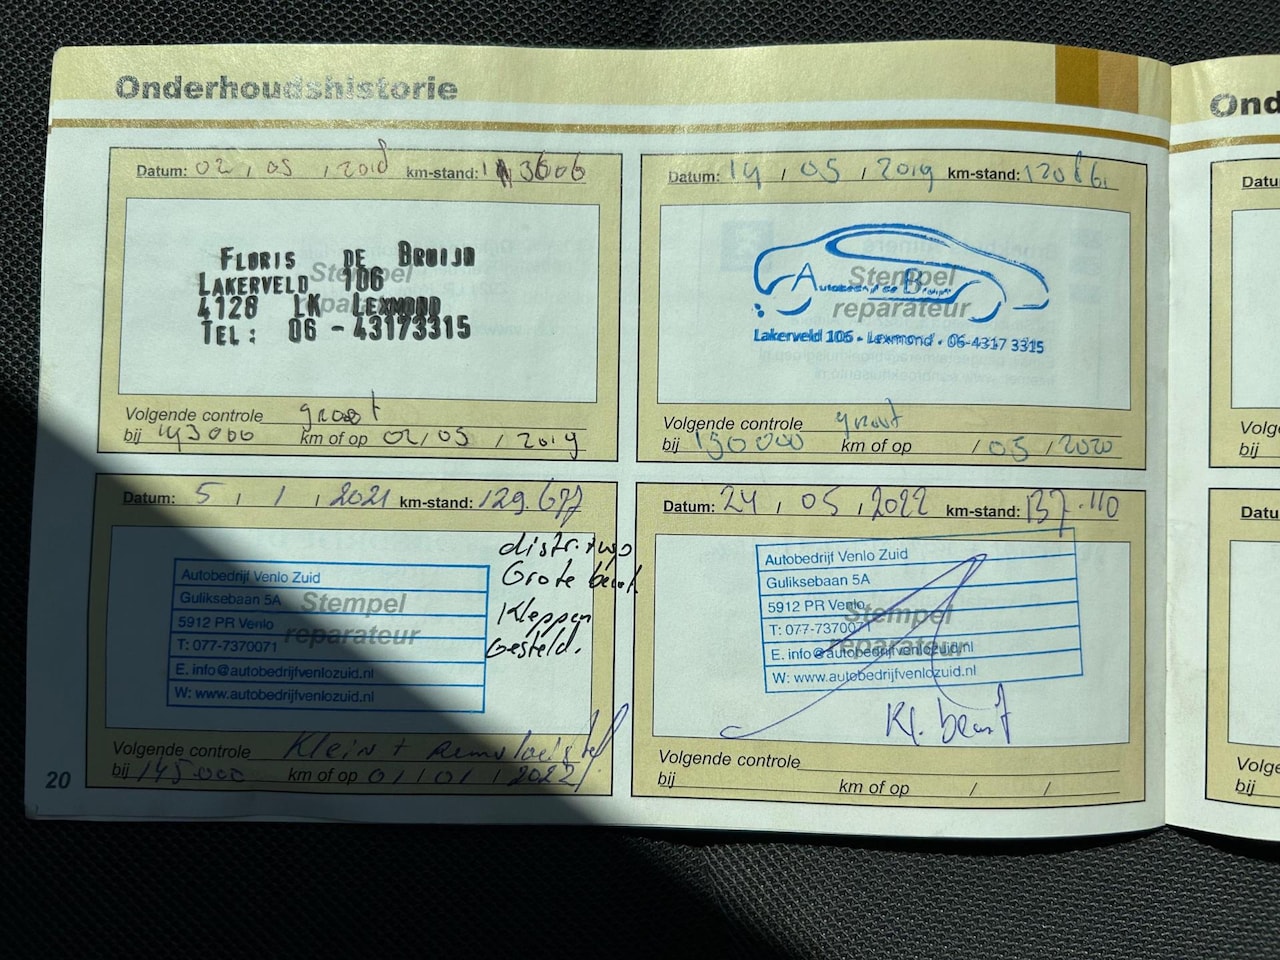 Onderhoudshistorie
Datum: 02 / 05 / 2018 km-stand: 113606
Stempel
reparateur
FLORIS DE BRUIJN
LAKERVELD 106
4128 LK LEXMOND
TEL: 06 - 43173315
Volgende controle groot
bij 143000 km of op 02 / 05 / 2019
Datum: 14 / 05 / 2019 km-stand: 120861
Stempel
reparateur
Autobedrijf de Bruijn
Lakerveld 106 - Lexmond - 06-4317 3315
Volgende controle groot
bij 150000 km of op / 05 / 2020
Datum: 5 / 1 / 2021 km-stand: 129.677
distr. + wp
Grote beurt
Kleppen
Gesteld.
Stempel
reparateur
Autobedrijf Venlo Zuid
Guliksebaan 5A
5912 PR Venlo
T: 077-7370071
E. info@autobedrijfvenlozuid.nl
W: www.autobedrijfvenlozuid.nl
Volgende controle Klein + remvloeistof
bij 145000 km of op 01 / 01 / 2022
Datum: 24 / 05 / 2022 km-stand: 137.110
Stempel
reparateur
Autobedrijf Venlo Zuid
Guliksebaan 5A
5912 PR Venlo
T: 077-7370071
E. info@autobedrijfvenlozuid.nl
W: www.autobedrijfvenlozuid.nl
Kl. beurt
Volgende controle
bij km of op / /
20
Ond
Datu
Volge
bij
Datu
Volge
bij